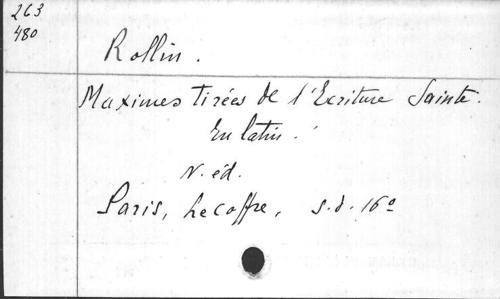 263
480
Rollin.
Maximes tirées de l'Ecriture Sainte.
En latin.
N. éd.
Paris, Lecoffre, s.d. 16º